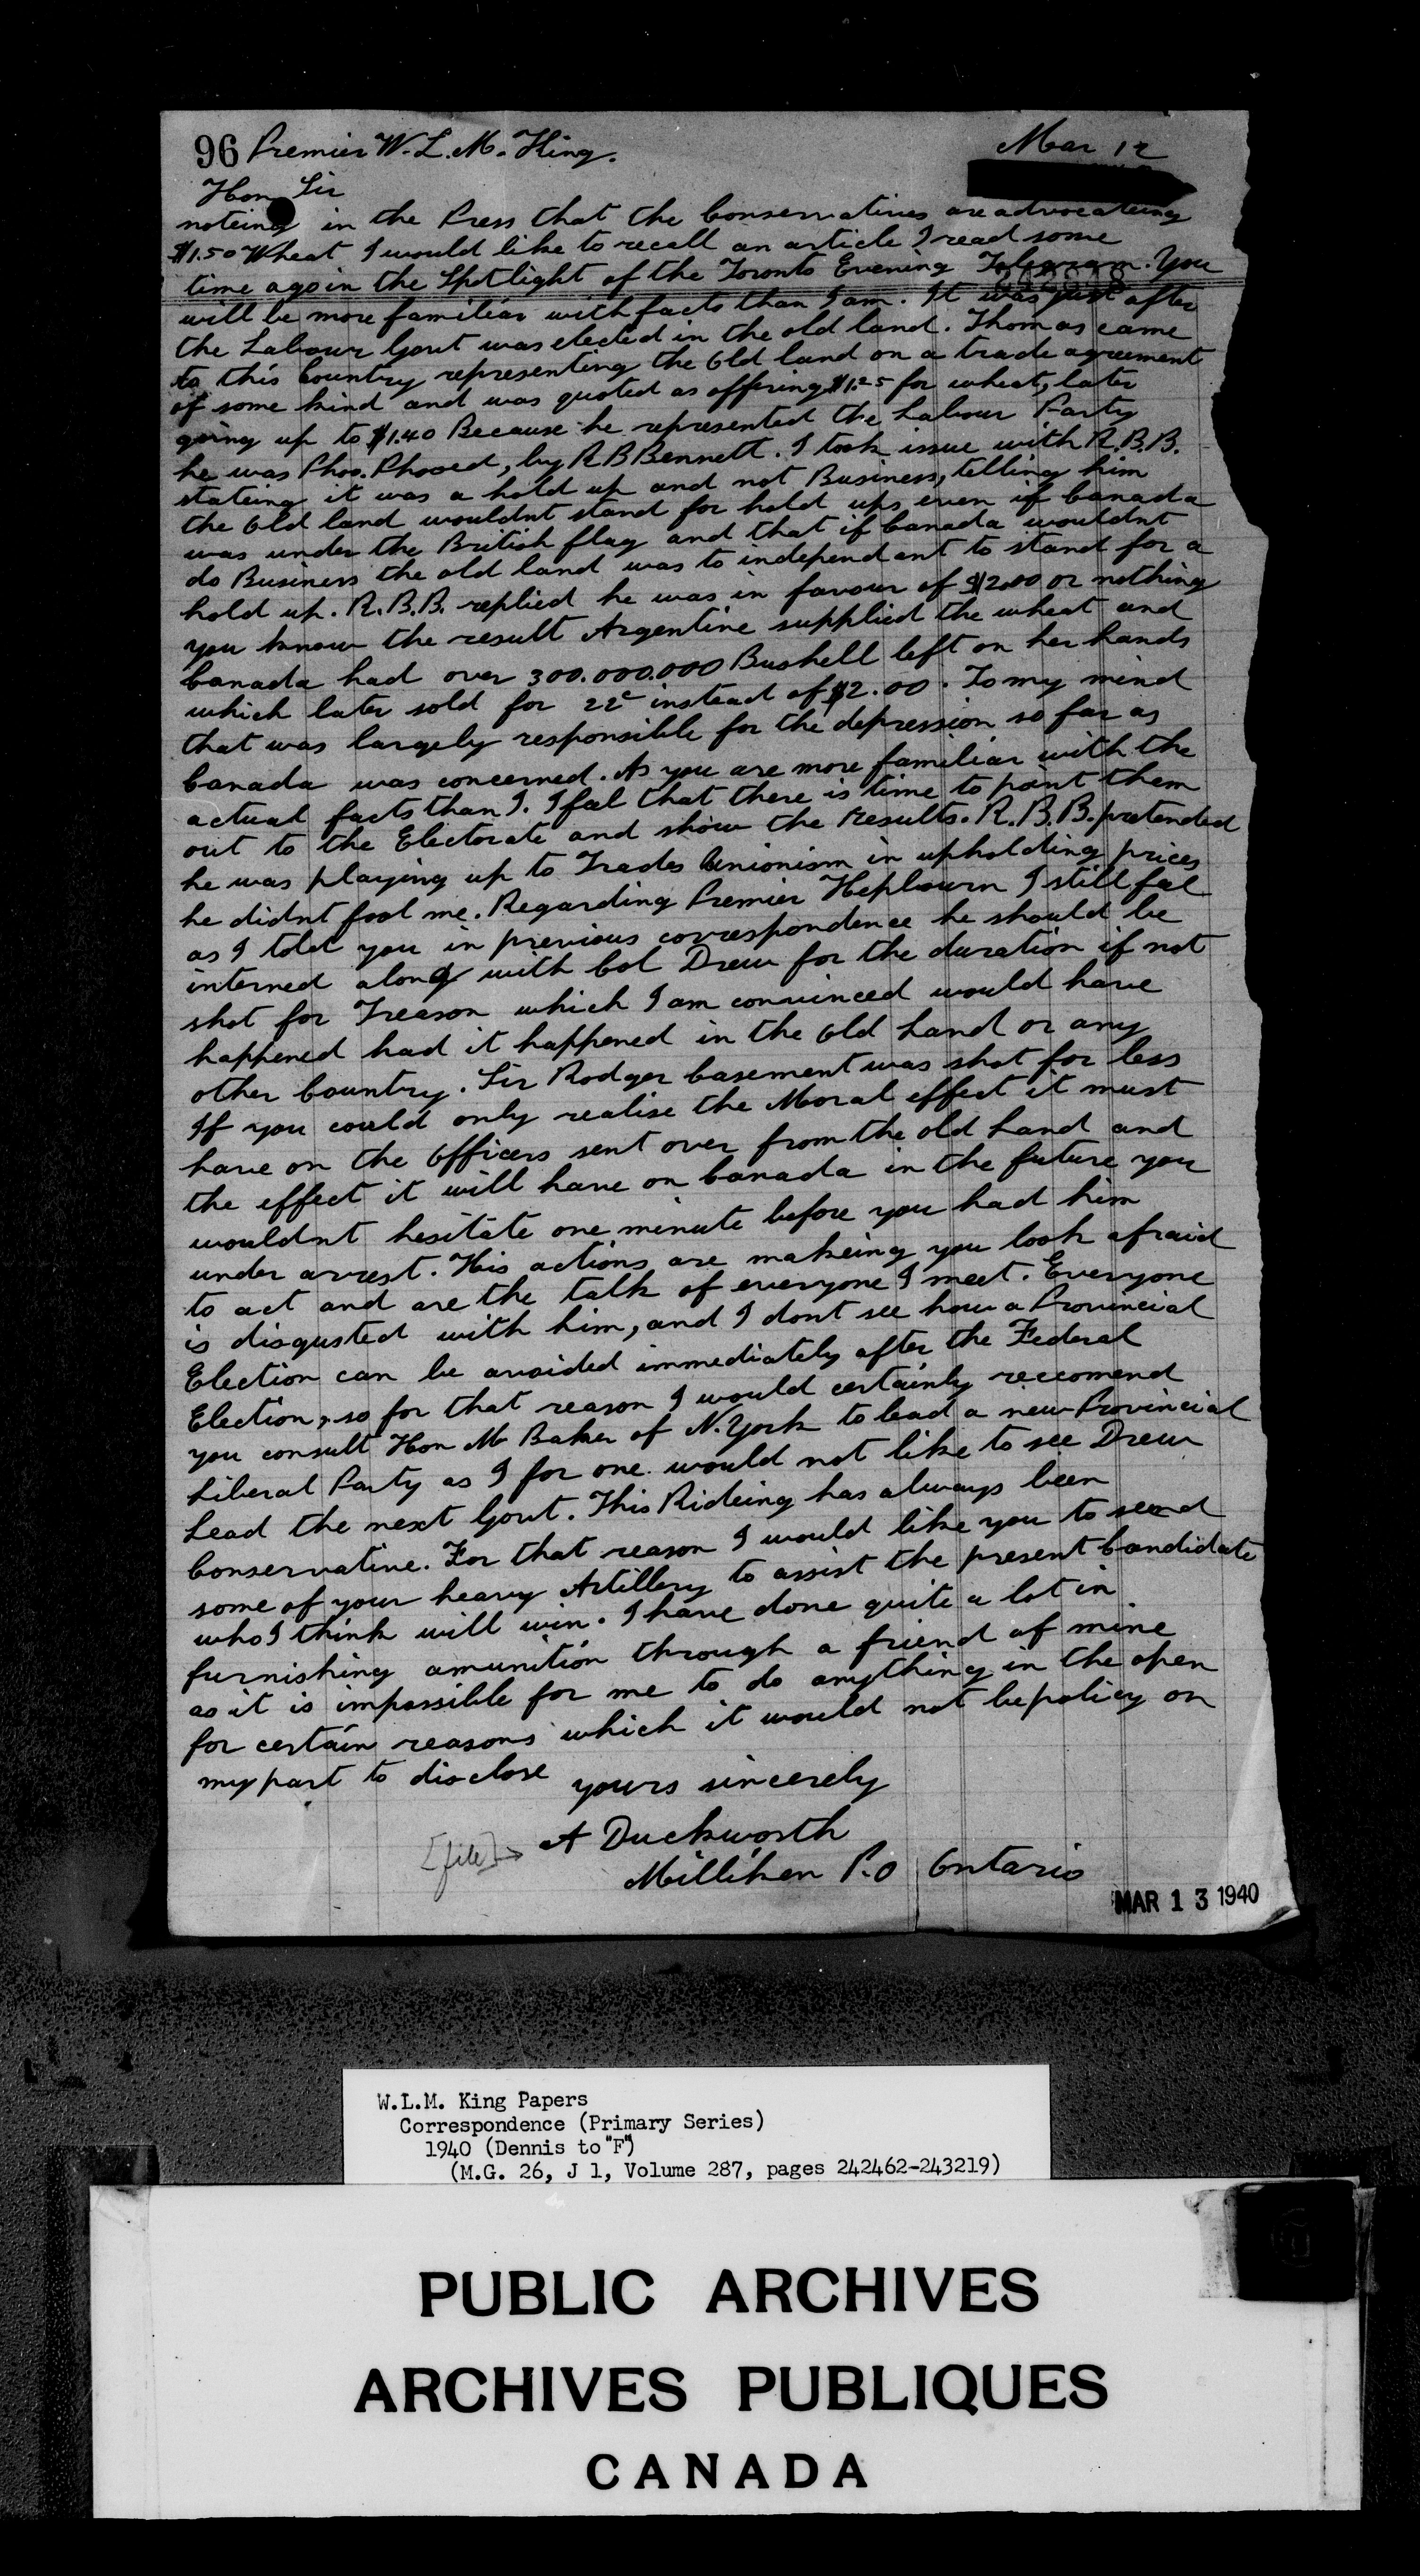 96 Premier W. L. M. King.
Mar 12
Hon Sir
noteing in the Press that the Conservatives are advocateing
$1.50 Wheat I would like to recall an article I read some
time ago in the Spotlight of the Toronto Evening Telegram. You
will be more familiar with facts than I am. It was just after
the Labour Govt was elected in the old land. Thomas came
to this Country representing the Old land on a trade agreement
of some kind and was quoted as offering $1.25 for wheat, later
going up to $1.40 Because he represented the Labour Party
he was Phoo. Phooed, by R B Bennett. I took issue with R.B.B.
stateing it was a hold up and not Business, telling him
the Old land wouldnt stand for hold ups even if Canada
was under the British flag and that if Canada wouldnt
do Business the old land was to independant to stand for a
hold up. R.B.B. replied he was in favour of $2.00 or nothing
you know the result Argentine supplied the wheat and
Canada had over 300.000.000 Bushell left on her hands
which later sold for 22c instead of $2.00. To my mind
that was largely responsible for the depression so far as
Canada was concerned. As you are more familiar with the
actual facts than I. I feel that there is time to point them
out to the Electorate and show the results. R.B.B. pretended
he was playing up to Trades Unionism in upholding prices
he didnt fool me. Regarding Premier Hepbourn I still feel
as I told you in previous correspondence he should be
interned along with Col Drew for the duration if not
shot for Treason which I am convinced would have
happened had it happened in the Old Land or any
other Country. Sir Rodger Casement was shot for less
If you could only realise the Moral effect it must
have on the Officers sent over from the old Land and
the effect it will have on Canada in the future you
wouldnt hesitate one minute before you had him
under arrest. His actions are makeing you look afraid
to act and are the talk of everyone I meet. Everyone
is disgusted with him, and I dont see how a Provincial
Election can be avoided immediately after the Federal
Election, so for that reason I would certainly reccomend
you consult Hon Mr Baker of N. York to lead a new Provincial
Liberal Party as I for one would not like to see Drew
Lead the next Govt. This Rideing has always been
Conservative. For that reason I would like you to send
some of your heavy Artillery to assist the present Candidate
who I think will win. I have done quite a lot in
furnishing amunition through a friend of mine
as it is impossible for me to do anything in the open
for certain reasons which it would not be policy on
my part to disclose
yours sincerely
[file]→ A Duckworth
Milliken P.O Ontario
MAR 13 1940
W.L.M. King Papers
Correspondence (Primary Series)
1940 (Dennis to "F")
(M.G. 26, J 1, Volume 287, pages 242462-243219)
PUBLIC ARCHIVES
ARCHIVES PUBLIQUES
CANADA